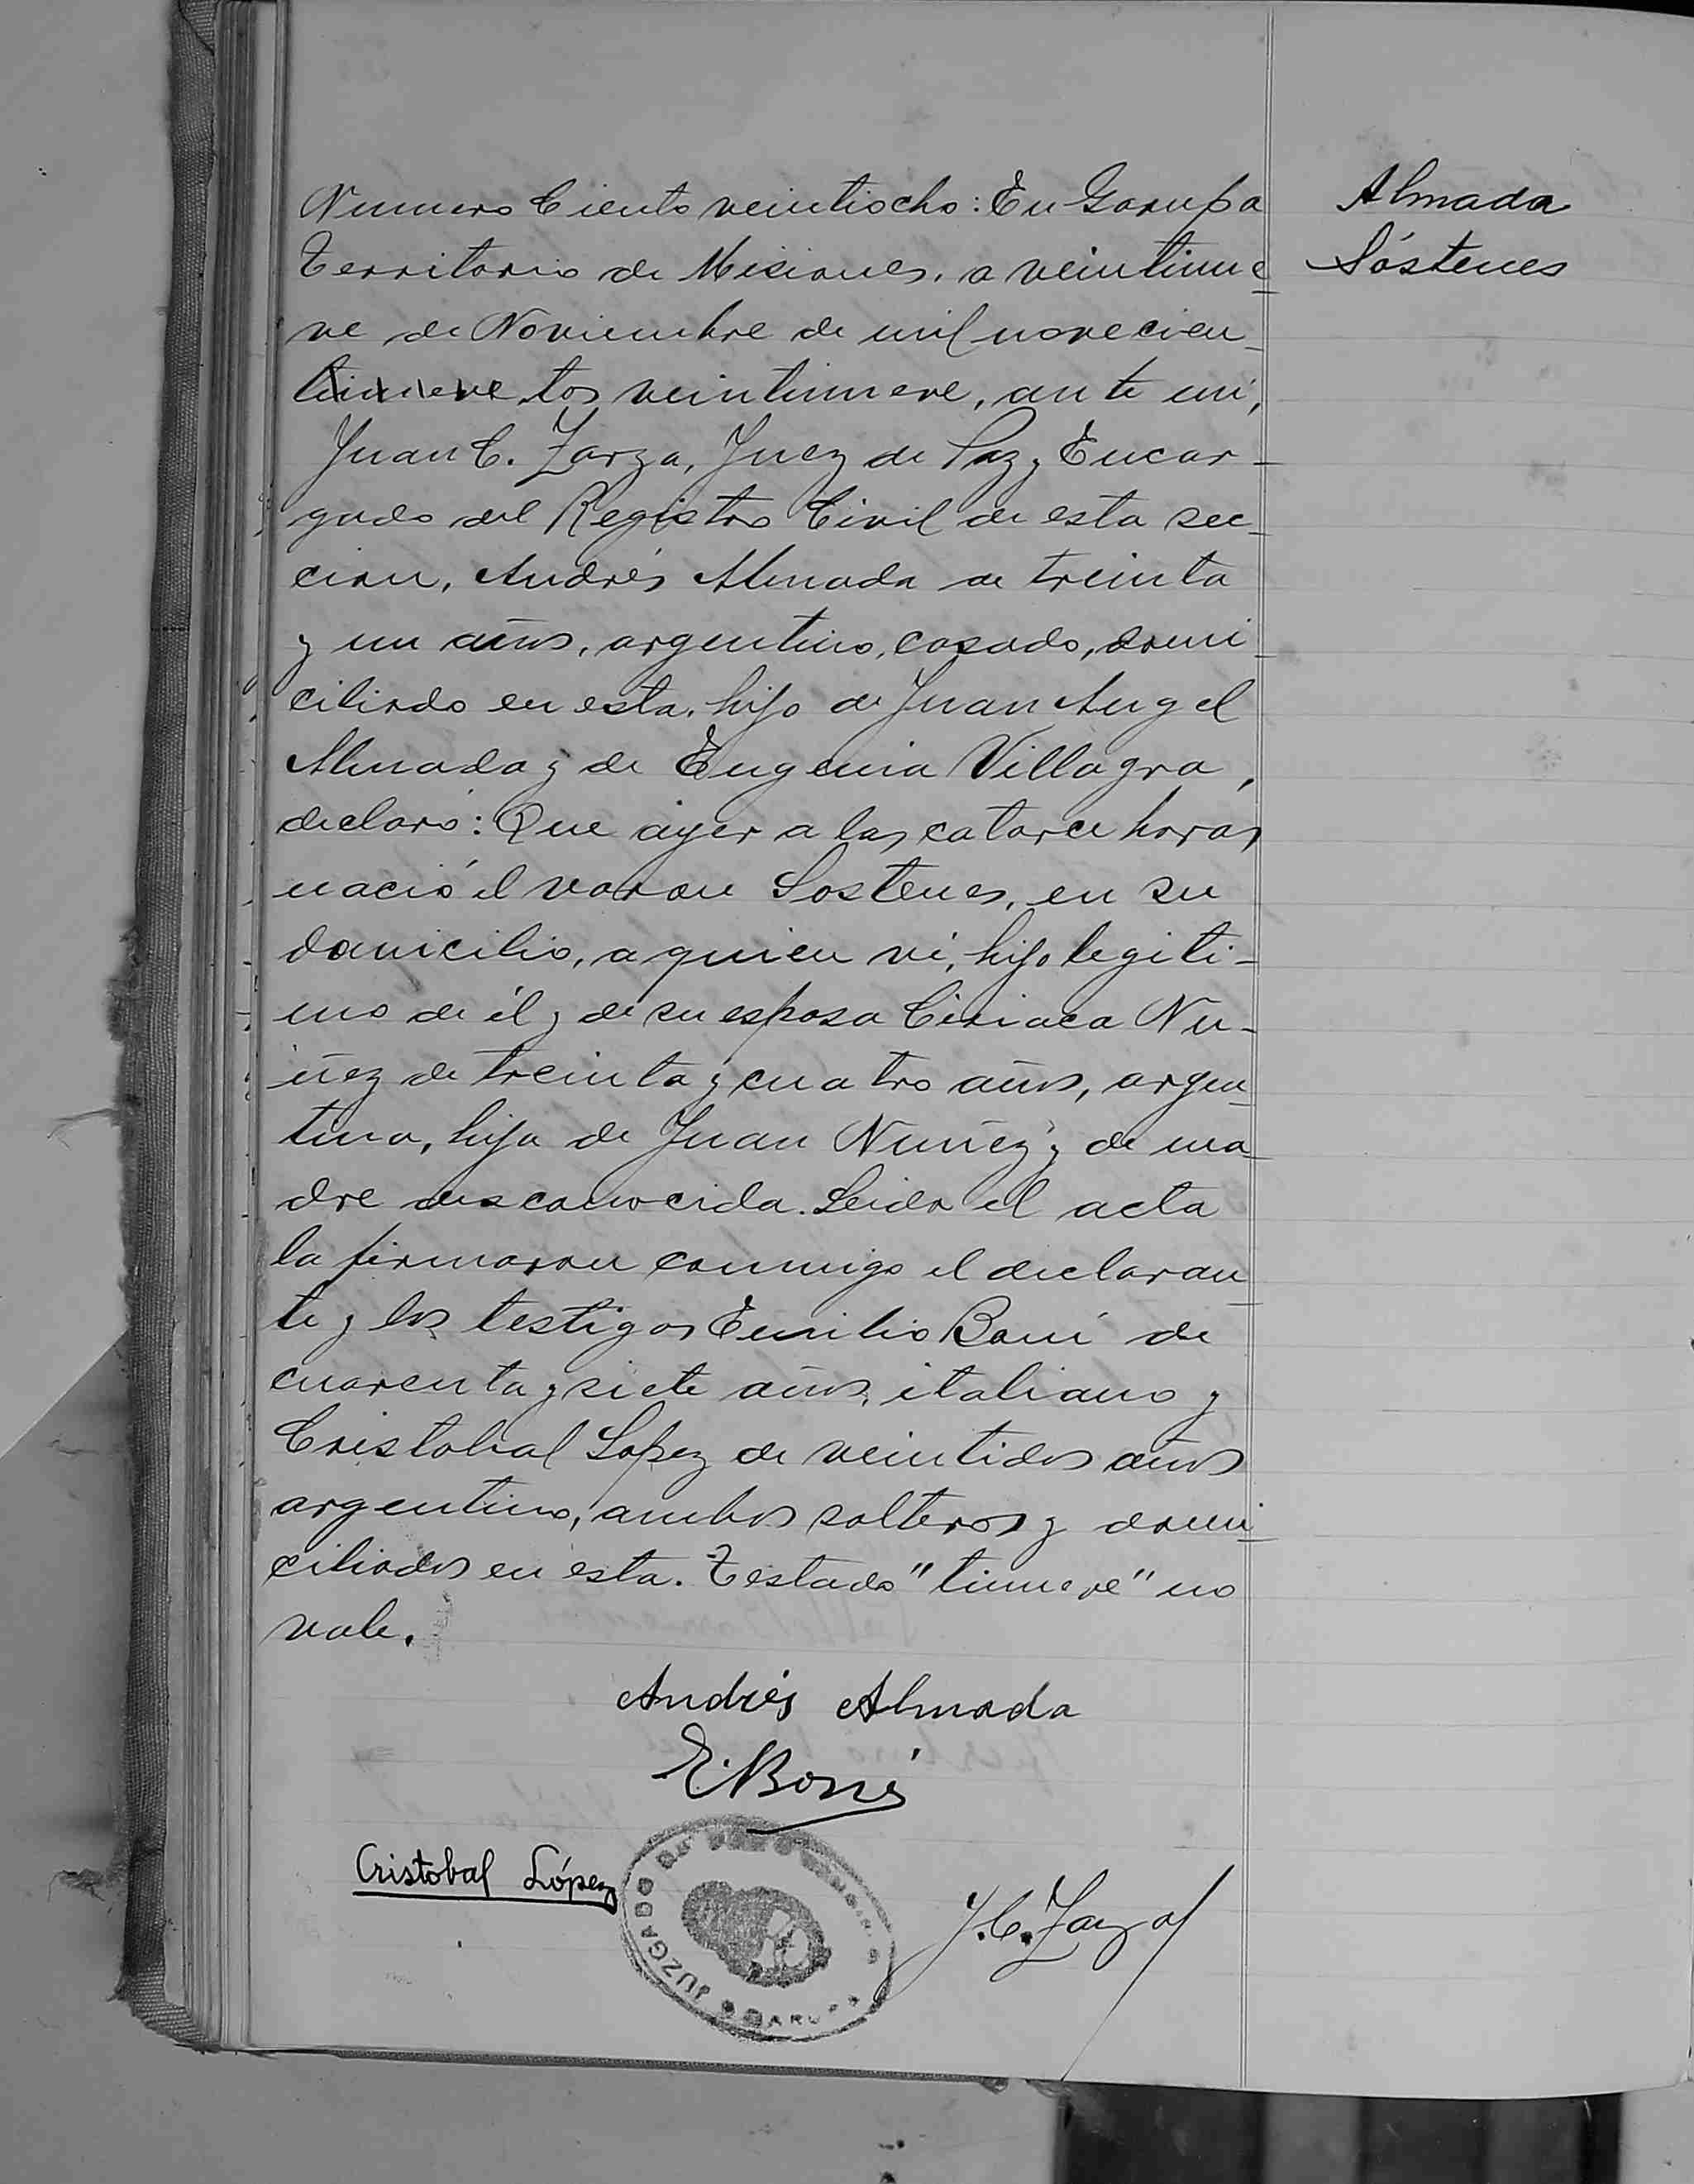 Numero Ciento veintiocho: En Garupa
Almada
Territorio de Misiones, a veintinue
Sóstenes
ve de Noviembre de mil novecien
tinueve tos veintinueve, ante mi,
Juan C. Zarza, Juez de Paz y Encar-
gado del Registro Civil de esta sec-
cion, Andrés Almada de treinta
y un años, argentino, casado, domi
ciliado en esta, hijo de Juan Angel
Almada y de Eugenia Villagra,
declaró: Que ayer a las catorce horas
nació el varon Sostenes, en su
domicilio, a quien vi, hijo legiti-
mo de él y de su esposa Ciriaca Nu-
ñez de treinta y cuatro años, argen
tina, hija de Juan Nuñez y de ma
dre desconocida. Leida el acta
la firmaron conmigo el declaran
te y los testigos Emilio Boni de
cuarenta y siete años, italiano y
Cristobal Lopez de veintidos años
argentino, ambos solteros y domi
ciliados en esta. Testado "tinueve" no
vale.
Andrés Almada
E. Boni
Cristobal López
JUZGADO DE
GARUPA
J. C. Zarza